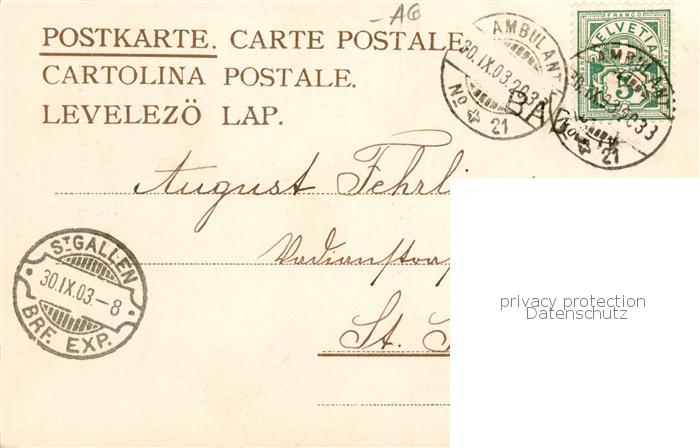 -AG
POSTKARTE. CARTE POSTALE
CARTOLINA POSTALE.
LEVELEZÖ LAP.
AMBULANT
30.IX.03.2033
No 21
FRANCO
HELVETIA
5
AMBULANT
30.IX.03.2033
No 21
BAD
August Fehrli
Vadianstras
St.
ST GALLEN
30.IX.03.-8
BRF. EXP.
privacy protection
Datenschutz